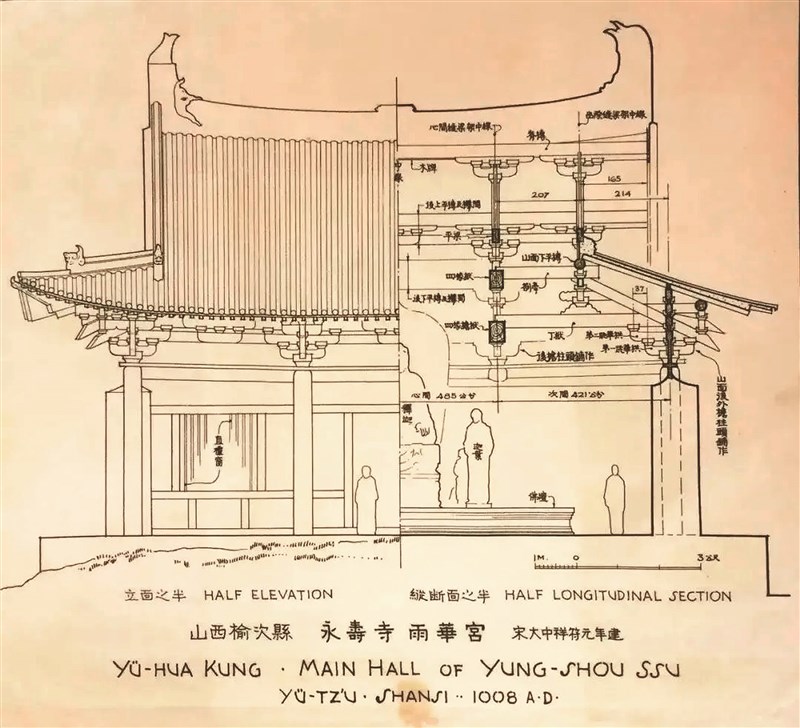 心間縫梁架中線
山面縫梁架中線
脊槫
165
207
214
後上平槫及襻間
平梁
四椽栿
山面下平槫
劄牽
37
後下平槫及襻間
四椽檐栿
丁栿
第二跳華栱
第一跳華栱
後檐柱頭鋪作
山面後外檐柱頭鋪作
心間 485公分
次間 421公分
直櫺窗
釋迦
迦葉
佛壇
1M. 0 3公尺
立面之半 HALF ELEVATION
縱斷面之半 HALF LONGITUDINAL SECTION
山西榆次縣 永壽寺 雨華宮 宋大中祥符元年建
YÜ-HUA KUNG · MAIN HALL OF YUNG-SHOU SSU
YÜ-TZ'U · SHANSI ·· 1008 A·D·